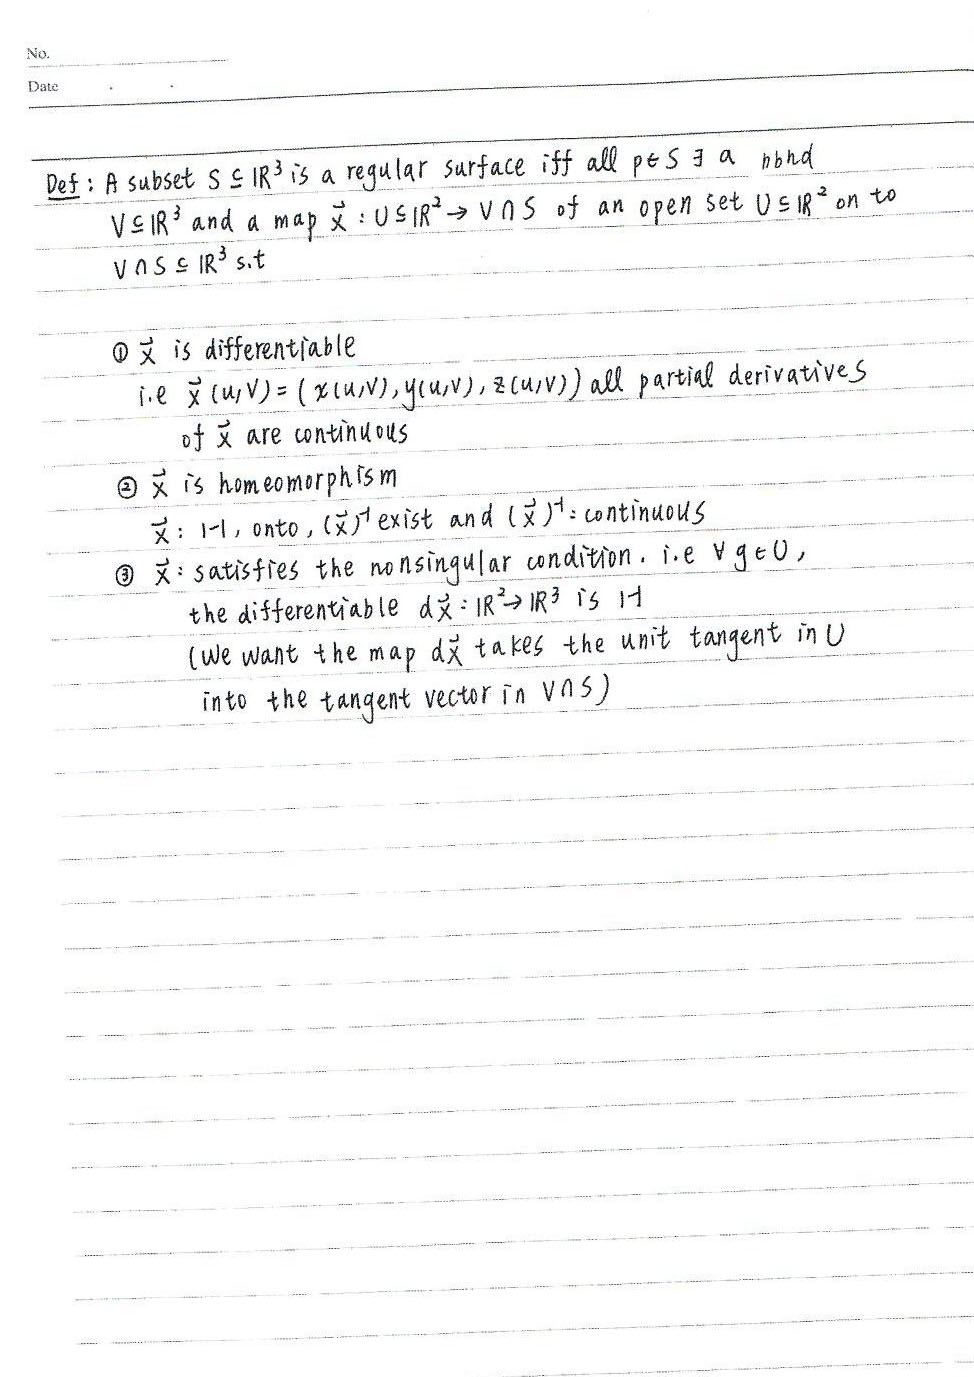 No.
Date . .
Def : A subset S ⊆ ℝ³ is a regular surface iff all p∈S ∃ a nbhd
V⊆ℝ³ and a map x⃗ : U⊆ℝ² → V∩S of an open set U⊆ℝ² on to
V∩S ⊆ ℝ³ s.t
① x⃗ is differentiable
i.e x⃗(u,v) = (x(u,v), y(u,v), z(u,v)) all partial derivatives
of x⃗ are continuous
② x⃗ is homeomorphism
x⃗ : 1-1, onto, (x⃗)⁻¹ exist and (x⃗)⁻¹ : continuous
③ x⃗ : satisfies the nonsingular condition. i.e ∀ g∈U,
the differentiable dx⃗ : ℝ² → ℝ³ is 1-1
(We want the map dx⃗ takes the unit tangent in U
into the tangent vector in V∩S)